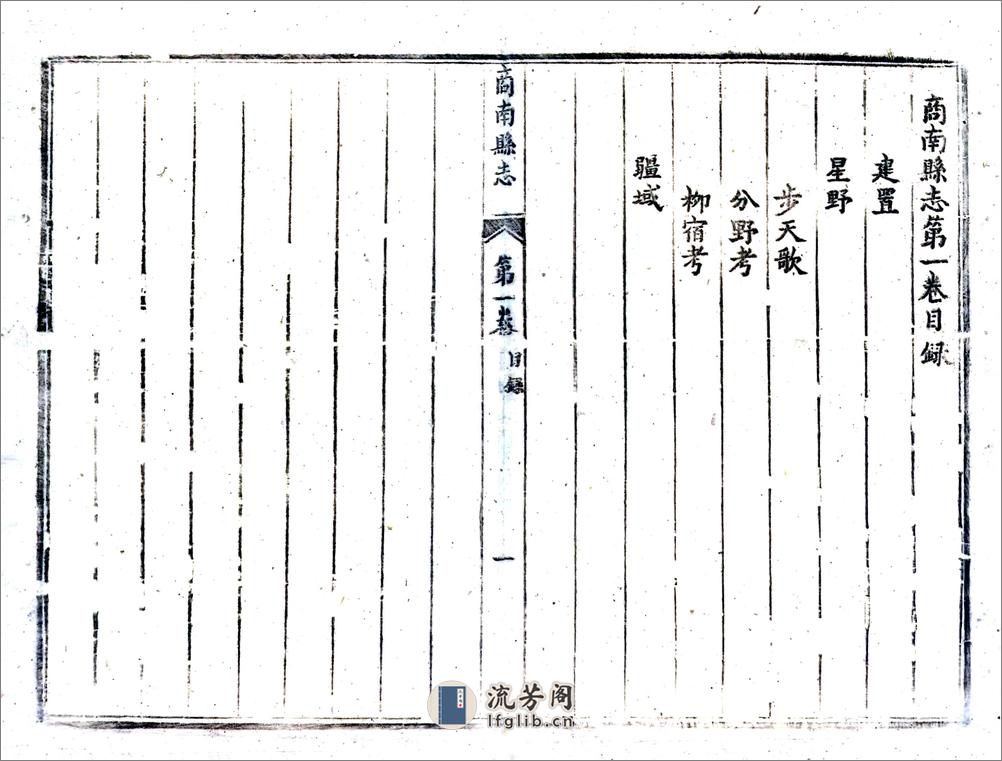 商南縣志第一卷目録
建置
星野
步天歌
分野考
柳宿考
疆域
商南縣志
第一卷
目録
一
流芳阁
lfglib.cn